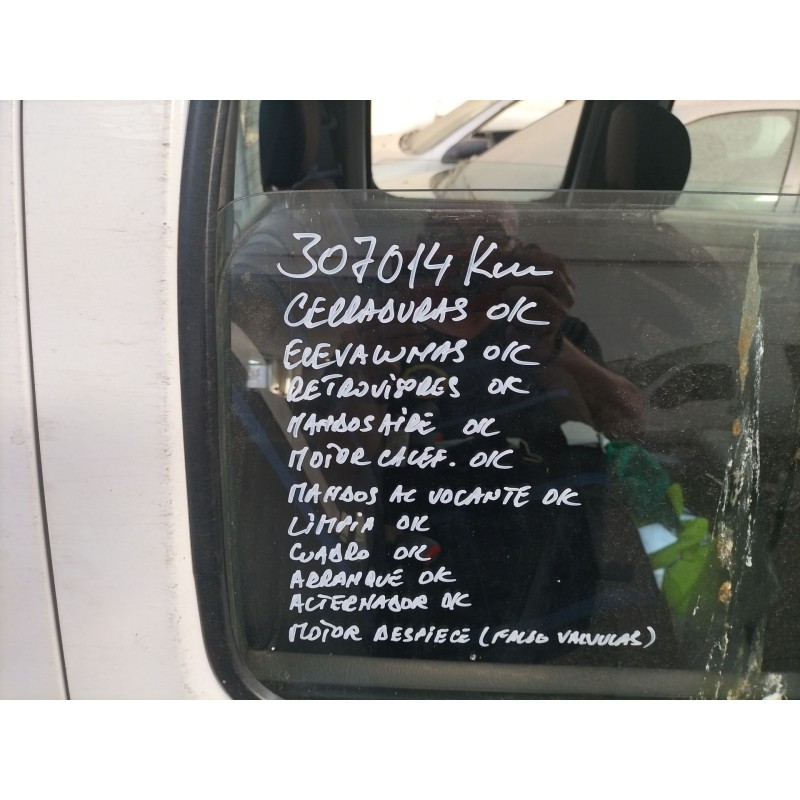 307014 Km
CERRADURAS OK
ELEVALUNAS OK
RETROVISORES OK
MANDOS AIRE OK
MOTOR CALEF. OK
MANDOS AL VOLANTE OK
LIMPIA OK
CUADRO OK
ARRANQUE OK
ALTERNADOR OK
MOTOR DESPIECE (FALLO VALVULAS)